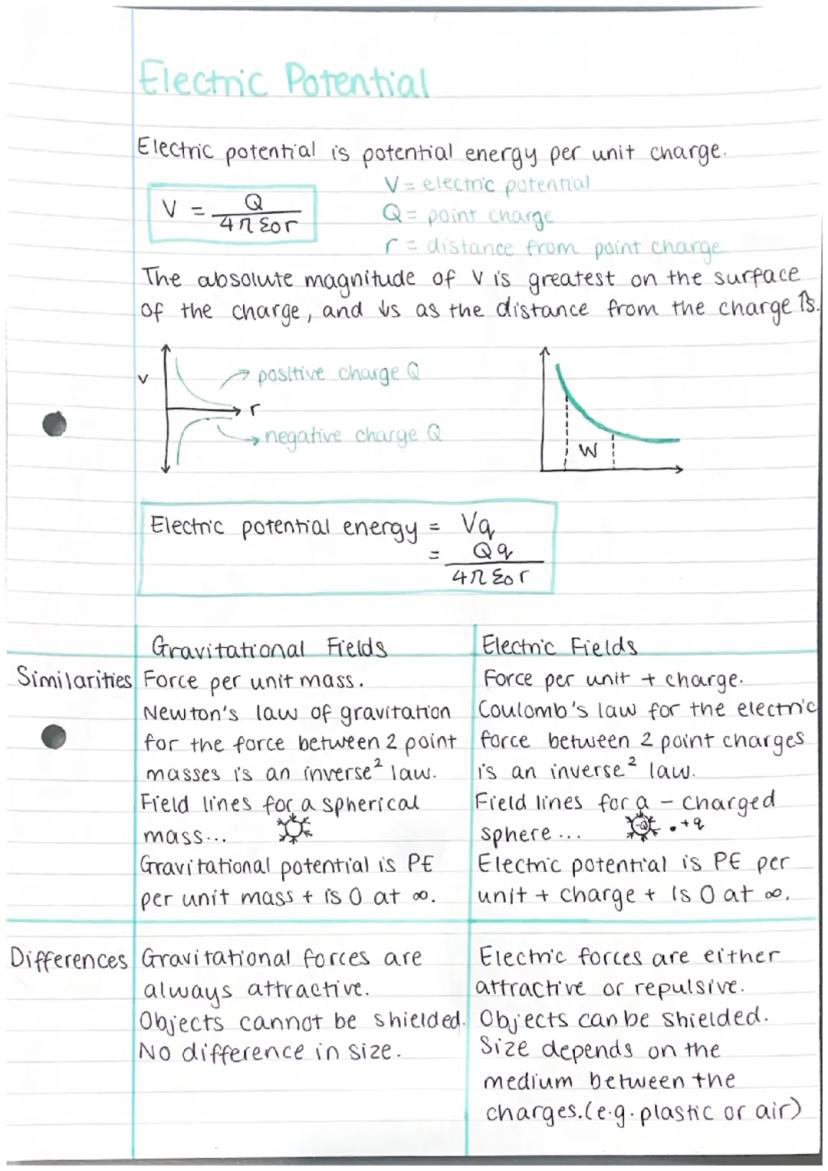 Electric Potential
Electric potential is potential energy per unit charge.
V = Q / 4π ε0 r
V = electric potential
Q = point charge
r = distance from point charge
The absolute magnitude of V is greatest on the surface
of the charge, and ↓s as the distance from the charge ↑s.
V
r
positive charge Q
negative charge Q
W
Electric potential energy = Vq
= Qq / 4π ε0 r
Gravitational Fields
Electric Fields
Similarities
Force per unit mass.
Newton's law of gravitation
for the force between 2 point
masses is an inverse² law.
Field lines for a spherical
mass...
Gravitational potential is PE
per unit mass + is 0 at ∞.
Force per unit + charge.
Coulomb's law for the electric
force between 2 point charges
is an inverse² law.
Field lines for a - charged
sphere... -Q • +q
Electric potential is PE per
unit + charge + is 0 at ∞.
Differences
Gravitational forces are
always attractive.
Objects cannot be shielded.
No difference in size.
Electric forces are either
attractive or repulsive.
Objects can be shielded.
Size depends on the
medium between the
charges.(e.g. plastic or air)